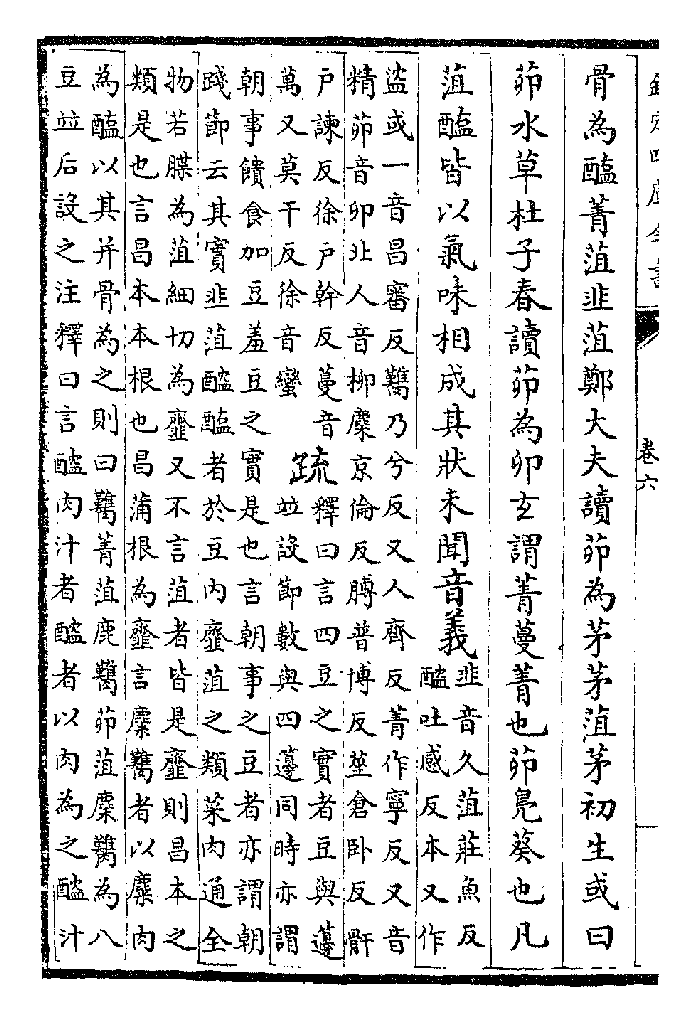 欽定四庫全書
卷六
骨為醢菁菹韭菹鄭大夫讀茆為茅茅菹茅初生或曰
茆水草杜子春讀茆為卯玄謂菁蔓菁也茆鳧葵也凡
菹醢皆以氣味相成其狀未聞音義韭音久菹莊魚反
醓吐感反本又作
盗或一音昌審反臡乃兮反又人齊反菁作寧反又音
精茆音卯北人音柳麋京倫反膊普博反莝倉卧反骭
戶諫反徐戶幹反蔓音
萬又莫干反徐音蠻
疏釋曰言四豆之實者豆與籩
並設節數與四籩同時亦謂
朝事饋食加豆羞豆之實是也言朝事之豆者亦謂朝
踐節云其實韭菹醓醢者於豆内韲菹之類菜肉通全
物若䐑為菹細切為韲又不言菹者皆是韲則昌本之
類是也言昌本本根也昌蒲根為韲言麋臡者以麋肉
為醢以其并骨為之則曰臡菁菹鹿臡茆菹麋臡為八
豆並后設之注釋曰言醓肉汁者醓者以肉為之醓汁